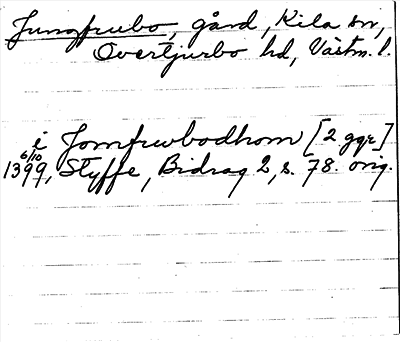 Jungfrubo, gård, Kila sn,
Övertjurbo hd, Västm. l.
i Jomfrwbodhom [2 ggr]
6/10
1399, Styffe, Bidrag 2, s. 78. orig.